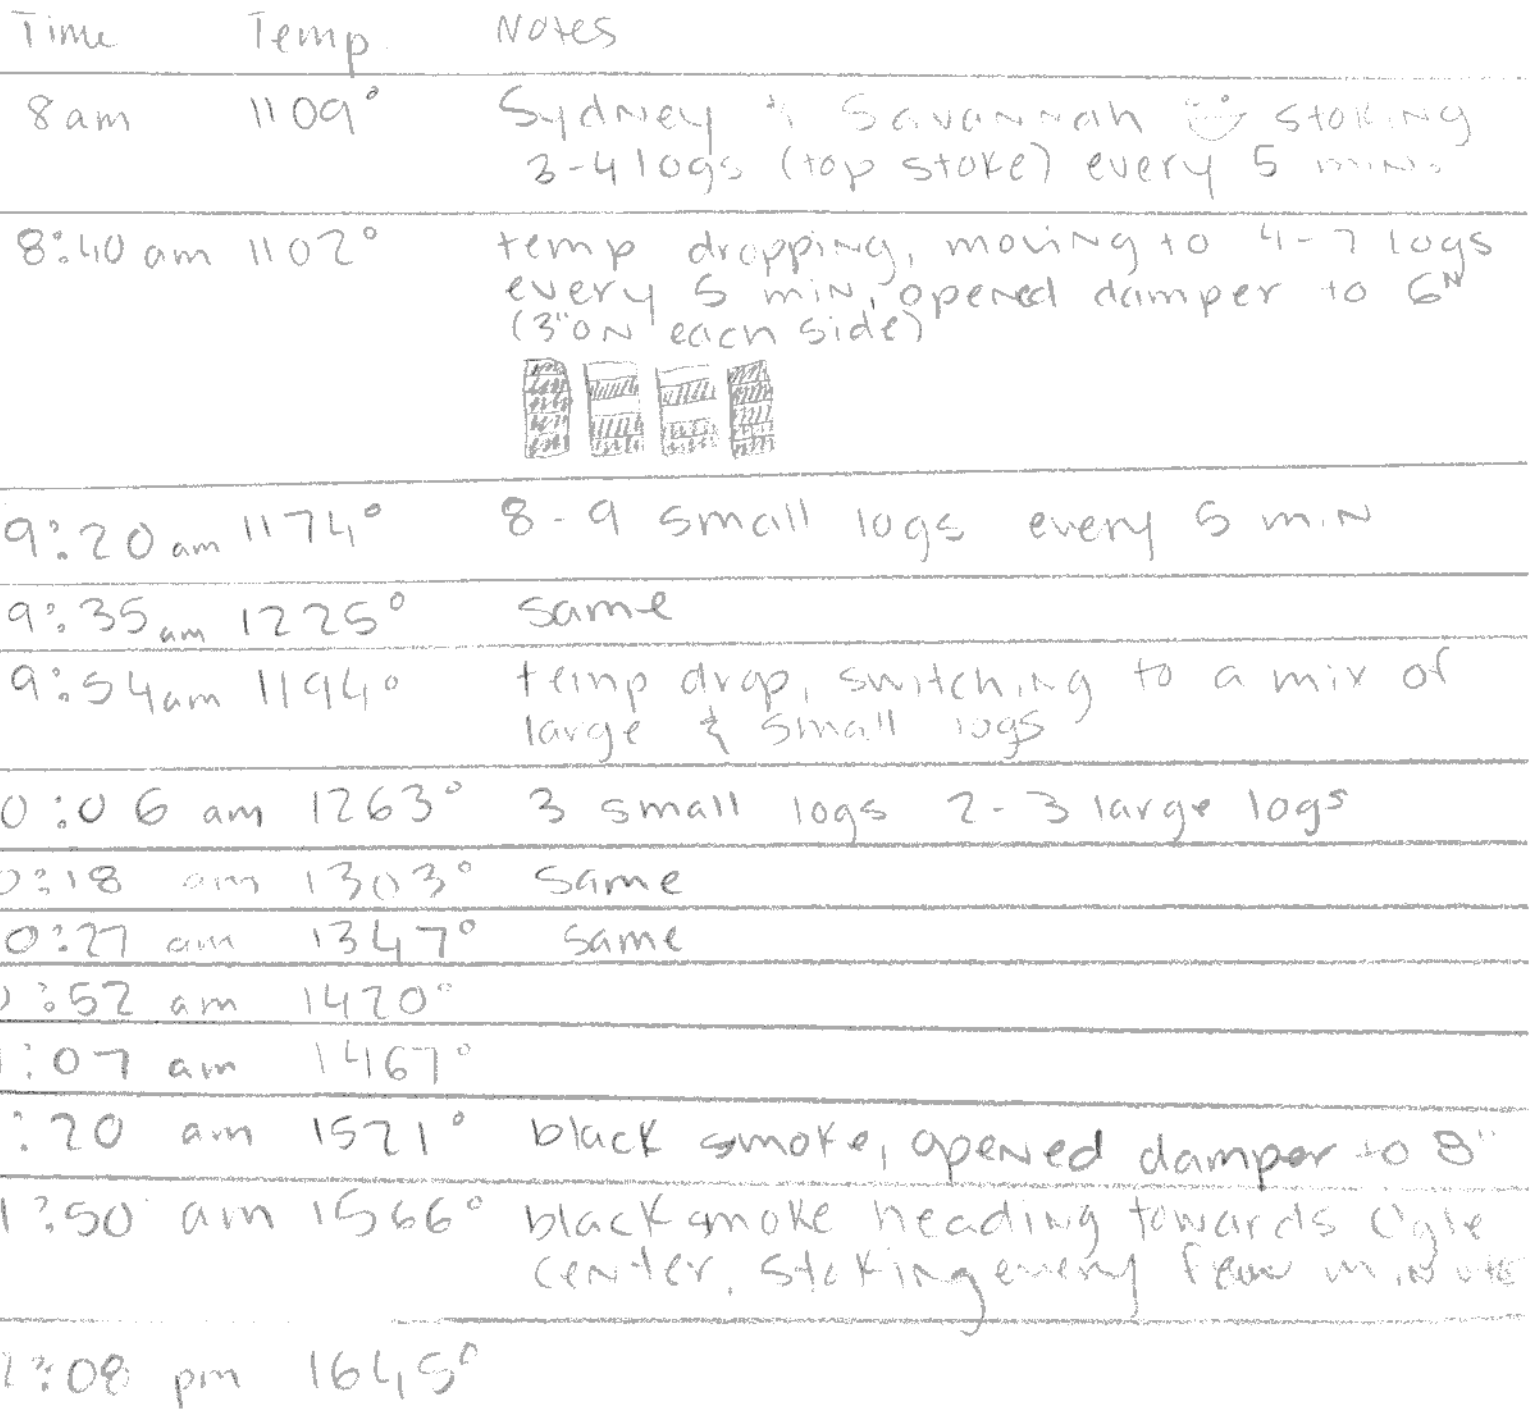 Time Temp. Notes
8am 1109° Sydney & Savannah stoking
3-4 logs (top stoke) every 5 mins.
8:40 am 1102° temp dropping, moving to 4-7 logs
every 5 min, opened damper to 6"
(3" on each side)
9:20 am 1174° 8-9 small logs every 5 min
9:35 am 1225° same
9:54 am 1194° temp drop, switching to a mix of
large & small logs
0:06 am 1263° 3 small logs 2-3 large logs
0:18 am 1303° same
0:27 am 1347° same
0:52 am 1420°
1:07 am 1467°
:20 am 1521° black smoke, opened damper to 8"
1:50 am 1566° black smoke heading towards Ogle
center, stoking every few minute
2:08 pm 1645°